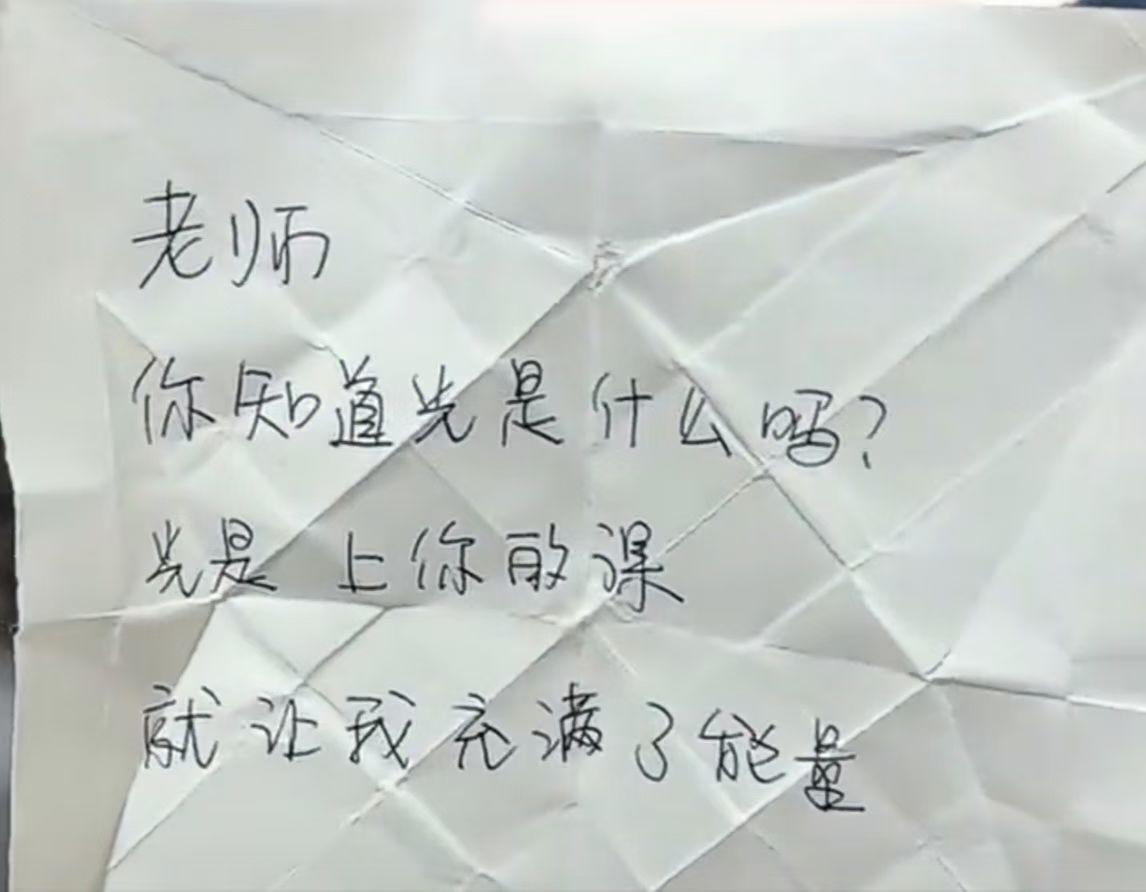 老师
你知道光是什么吗?
光是 上你的课
就让我充满了能量